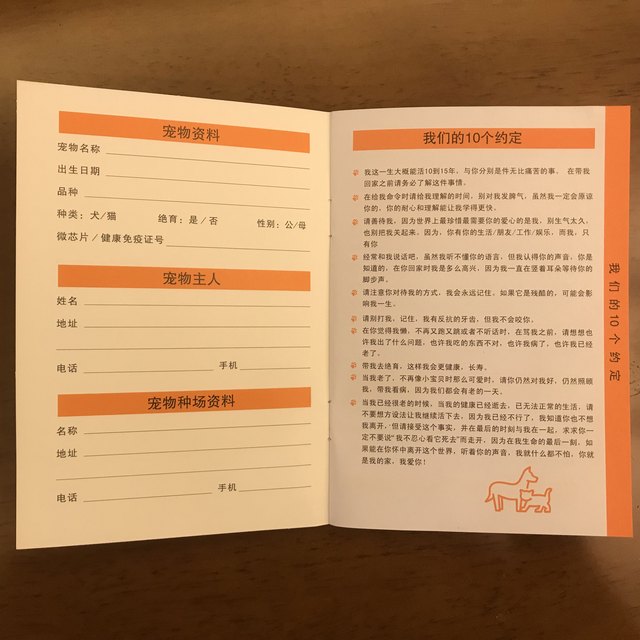 宠物资料
宠物名称
出生日期
品种
种类：犬/猫 绝育：是/否 性别：公/母
微芯片/健康免疫证号
宠物主人
姓名
地址
电话 手机
宠物种场资料
名称
地址
电话 手机
我们的10个约定
我这一生大概能活10到15年，与你分别是件无比痛苦的事。 在带我
回家之前请务必了解这件事情。
在给我命令时请给我理解的时间，别对我发脾气，虽然我一定会原谅
你的，你的耐心和理解能让我学得更快。
请善待我，因为世界上最珍惜最需要你的爱心的是我，别生气太久，
也别把我关起来，因为，你有你的生活/朋友/工作/娱乐，而我，只
有你
经常和我说话吧，虽然我听不懂你的语言，但我认得你的声音，你是
知道的，在你回家时我是多么高兴，因为我一直在竖着耳朵等待你的
脚步声。
请注意你对待我的方式，我会永远记住，如果它是残酷的，可能会影
响我一生。
请别打我，记住，我有反抗的牙齿，但我不会咬你。
在你觉得我懒，不再又跑又跳或者不听话时，在骂我之前，请想想也
许我出了什么问题，也许我吃的东西不对，也许我病了，也许我已经
老了。
带我去绝育，这样我会更健康，长寿。
当我老了，不再像小宝贝时那么可爱时，请你仍然对我好，仍然照顾
我，带我看病，因为我们都会有老的一天。
当我已经很老的时候，当我的健康已经逝去，已无法正常的生活，请
不要想方设法让我继续活下去，因为我已经不行了，我知道你也不想
我离开，但请接受这个事实，并在最后的时刻与我在一起，求求你一
定不要说“我不忍心看它死去”而走开，因为在我生命的最后一刻，如
果能在你怀中离开这个世界，听着你的声音，我就什么都不怕，你就
是我的家，我爱你！
我们的10个约定